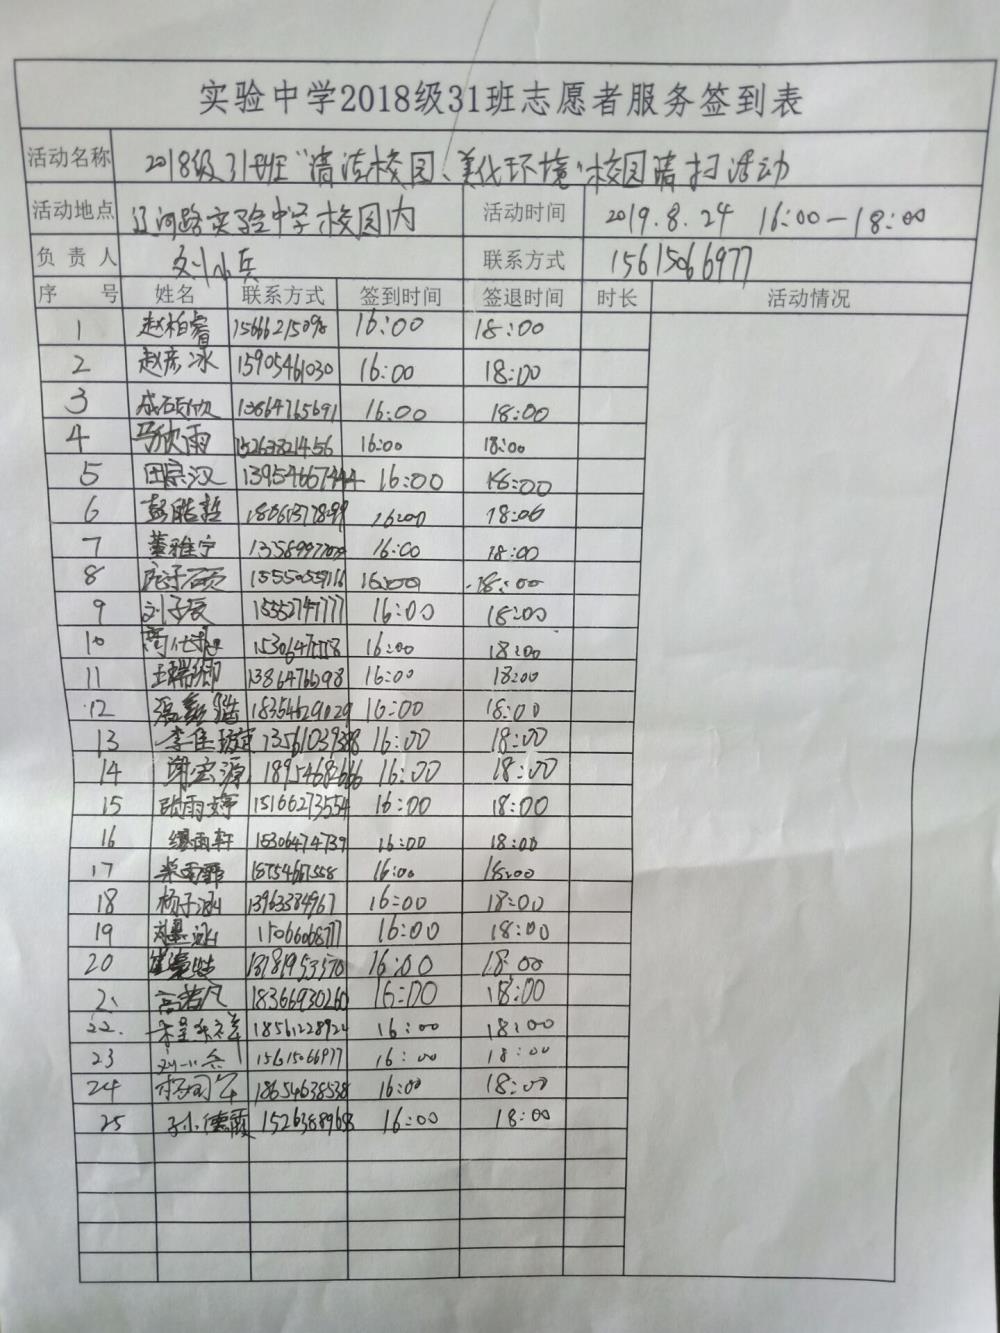 实验中学2018级31班志愿者服务签到表
活动名称 2018级31班"清洁校园、美化环境"校园清扫活动
活动地点 辽河路实验中学校园内 活动时间 2019.8.24 16:00—18:00
负责人 刘小兵 联系方式 15615066977
序号 姓名 联系方式 签到时间 签退时间 时长 活动情况
1 赵柏睿 16:00 18:00
2 赵彦冰 15905461030 16:00 18:00
3 成硕欣 13864765691 16:00 18:00
4 马欣雨 15263821456 16:00 18:00
5 田宗汉 13954667444 16:00 18:00
6 彭皓哲 16:00 18:00
7 董雅宁 16:00 18:00
8 16:00 18:00
9 16:00 18:00
10 16:00 18:00
11 16:00 18:00
12 18354629029 16:00 18:00
13 李佳璇 13561039388 16:00 18:00
14 谢宏源 16:00 18:00
15 15166273554 16:00 18:00
16 雨轩 15306474739 16:00 18:00
17 16:00 18:00
18 杨子涵 13963384967 16:00 18:00
19 16:00 18:00
20 13181953370 16:00 18:00
高若凡 18366930260 16:00 18:00
22. 18561228924 16:00 18:00
23 刘小兵 15615066977 16:00 18:00
24 杨同军 18654638538 16:00 18:00
25 孙德霞 1526388968 16:00 18:00